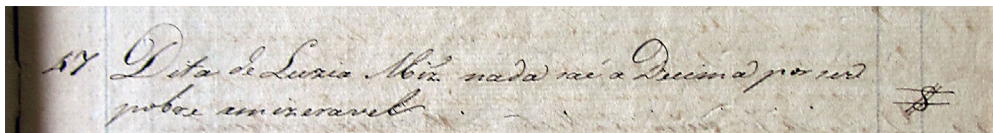 57 Dita de Luzia Miz nada saé a Decima por ser
pobre emizeravel . . . . . . $